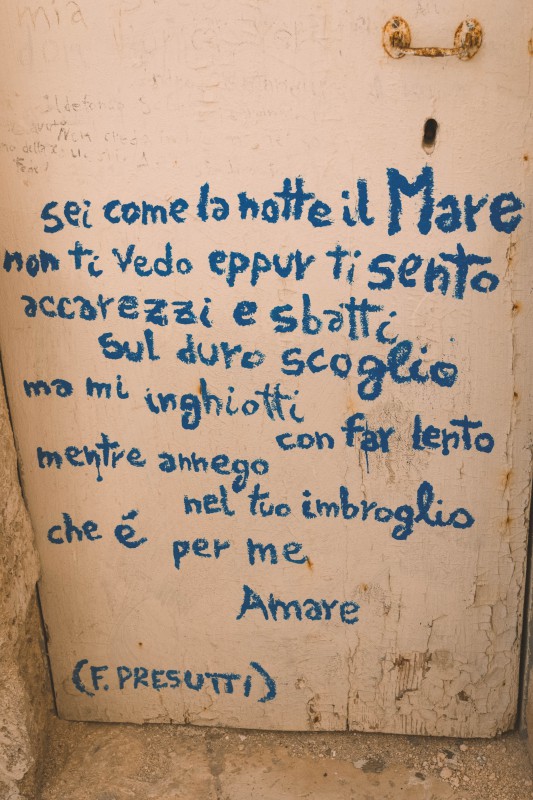 mia
sei come la notte il Mare
non ti vedo eppur ti sento
accarezzi e sbatti
sul duro scoglio
ma mi inghiotti
con far lento
mentre annego
nel tuo imbroglio
che é per me
Amare
(F. PRESUTTI)